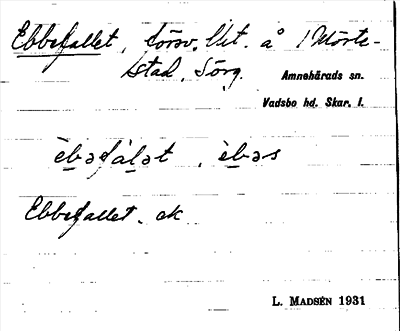 Ebbefallet, försv. lit. å i Mörte-
stad, Sörg.
Amnehärads sn.
Vadsbo hd. Skar. l.
èb̲əfál̲ət, èb̲əs
Ebbefallet. ek
L. MADSÉN 1931